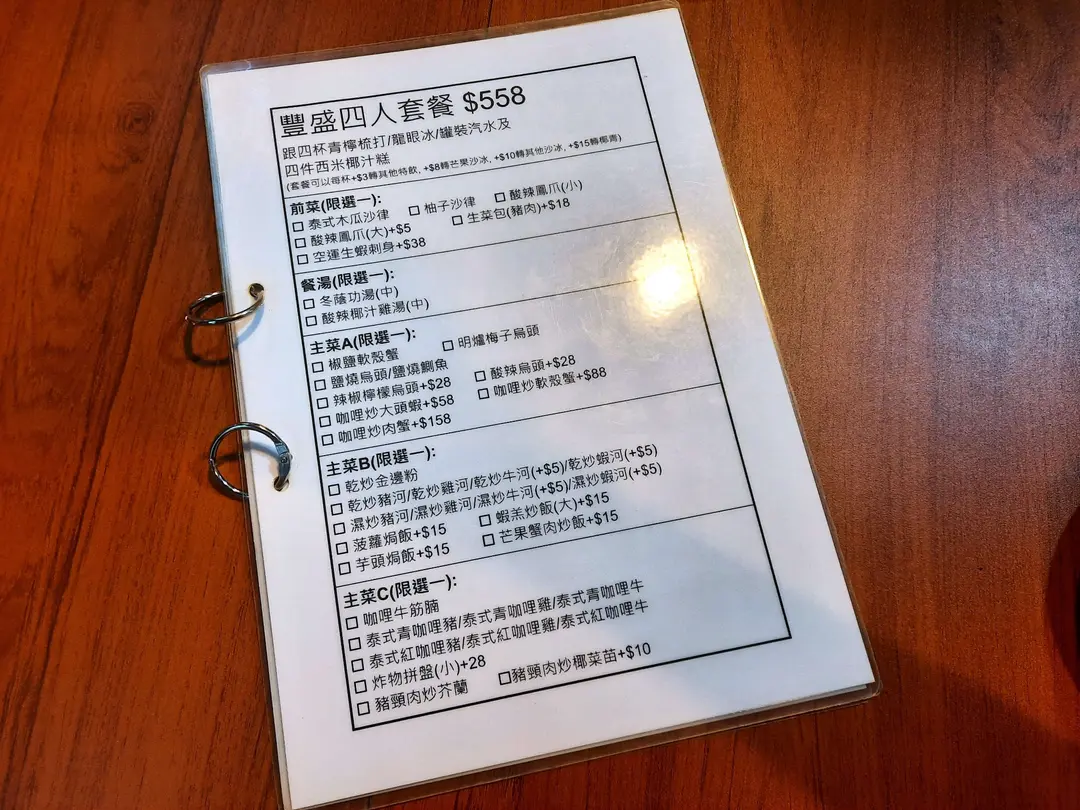 豐盛四人套餐 $558
跟四杯青檸梳打/龍眼冰/罐裝汽水及
四件西米椰汁糕
(套餐可以每杯+$3轉其他特飲, +$8轉芒果沙冰, +$10轉其他沙冰, +$15轉椰青)
前菜(限選一):
☐ 泰式木瓜沙律 ☐ 柚子沙律 ☐ 酸辣鳳爪(小)
☐ 酸辣鳳爪(大)+$5 ☐ 生菜包(豬肉)+$18
☐ 空運生蝦刺身+$38
餐湯(限選一):
☐ 冬蔭功湯(中)
☐ 酸辣椰汁雞湯(中)
主菜A(限選一):
☐ 椒鹽軟殼蟹 ☐ 明爐梅子烏頭
☐ 鹽燒烏頭/鹽燒鰂魚
☐ 辣椒檸檬烏頭+$28 ☐ 酸辣烏頭+$28
☐ 咖哩炒大頭蝦+$58 ☐ 咖哩炒軟殼蟹+$88
☐ 咖哩炒肉蟹+$158
主菜B(限選一):
☐ 乾炒金邊粉
☐ 乾炒豬河/乾炒雞河/乾炒牛河(+$5)/乾炒蝦河(+$5)
☐ 濕炒豬河/濕炒雞河/濕炒牛河(+$5)/濕炒蝦河(+$5)
☐ 菠蘿焗飯+$15 ☐ 蝦羔炒飯(大)+$15
☐ 芋頭焗飯+$15 ☐ 芒果蟹肉炒飯+$15
主菜C(限選一):
☐ 咖哩牛筋腩
☐ 泰式青咖哩豬/泰式青咖哩雞/泰式青咖哩牛
☐ 泰式紅咖哩豬/泰式紅咖哩雞/泰式紅咖哩牛
☐ 炸物拼盤(小)+28
☐ 豬頸肉炒芥蘭 ☐豬頸肉炒椰菜苗+$10